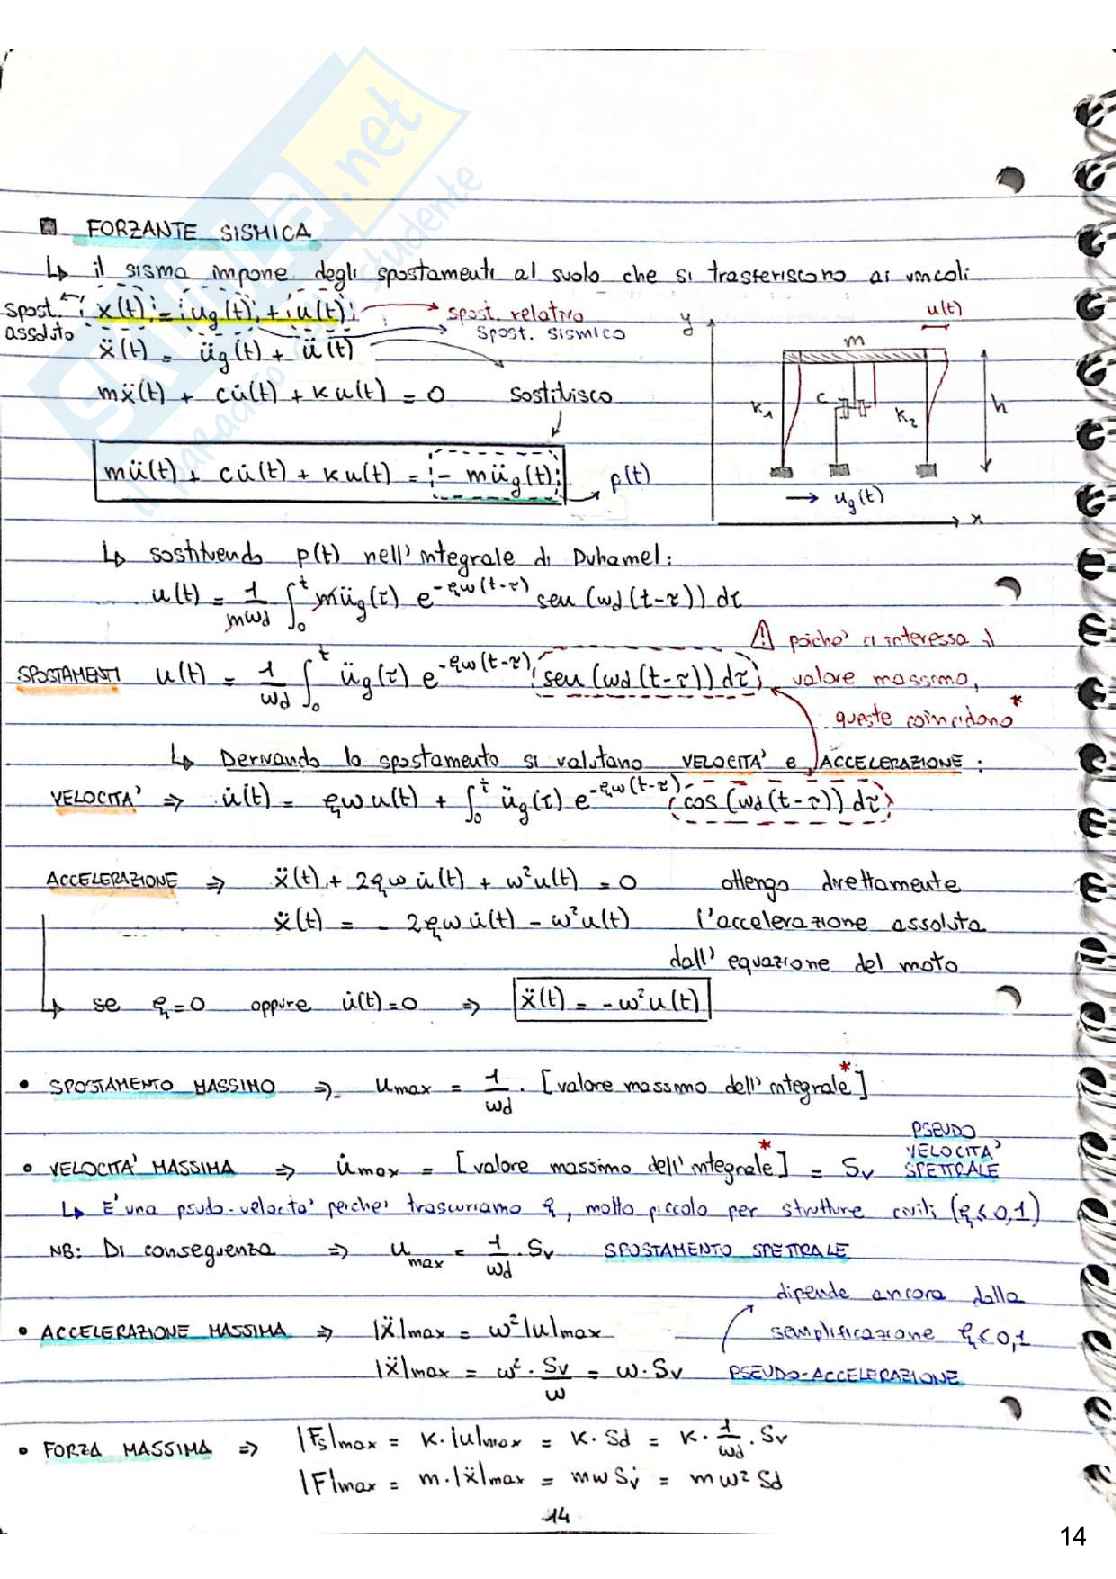 FORZANTE SISMICA
↳ il sisma impone degli spostamenti al suolo che si trasferiscono ai vincoli
spost. assoluto ← x(t) = ug(t) + u(t) → spost. relativo
→ spost. sismico
ẍ(t) = üg(t) + ü(t)
mẍ(t) + cu̇(t) + Ku(t) = 0 sostituisco
mü(t) + cu̇(t) + Ku(t) = - müg(t) → p(t)
y
u(t)
m
K1
c
K2
h
→ ug(t)
x
↳ sostituendo p(t) nell'integrale di Duhamel:
u(t) = 1/mωd ∫0^t müg(τ) e^-ξω(t-τ) sen (ωd(t-τ)) dτ
⚠ poiché ci interessa il
SPOSTAMENTI u(t) = 1/ωd ∫0^t üg(τ) e^-ξω(t-τ) sen (ωd(t-τ)) dτ valore massimo,
queste coincidono *
↳ Derivando lo spostamento si valutano VELOCITA' e ACCELERAZIONE:
VELOCITA' ⇒ u̇(t) = ξω u(t) + ∫0^t üg(τ) e^-ξω(t-τ) cos (ωd(t-τ)) dτ
ACCELERAZIONE ⇒ ẍ(t) + 2ξω u̇(t) + ω²u(t) = 0 ottengo direttamente
ẍ(t) = - 2ξω u̇(t) - ω²u(t) l'accelerazione assoluta
dall'equazione del moto
↳ se ξ=0 oppure u̇(t)=0 ⇒ ẍ(t) = -ω²u(t)
• SPOSTAMENTO MASSIMO ⇒ umax = 1/ωd · [valore massimo dell'integrale*]
PSEUDO
VELOCITA'
• VELOCITA' MASSIMA ⇒ u̇max = [valore massimo dell'integrale*] = Sv SPETTRALE
↳ E' una psudo-velocità perché trascuriamo ξ, molto piccolo per strutture civili (ξ<0,1)
NB: Di conseguenza ⇒ umax = 1/ωd · Sv SPOSTAMENTO SPETTRALE
dipende ancora dalla
• ACCELERAZIONE MASSIMA ⇒ |ẍ|max = ω²|u|max semplificazione ξ<0,1
|ẍ|max = ω² · Sv/ω = ω · Sv PSEUDO-ACCELERAZIONE
• FORZA MASSIMA ⇒ |Fs|max = K·|u|max = K · Sd = K · 1/ωd · Sv
|F|max = m·|ẍ|max = mωSv = mω² Sd
14
14